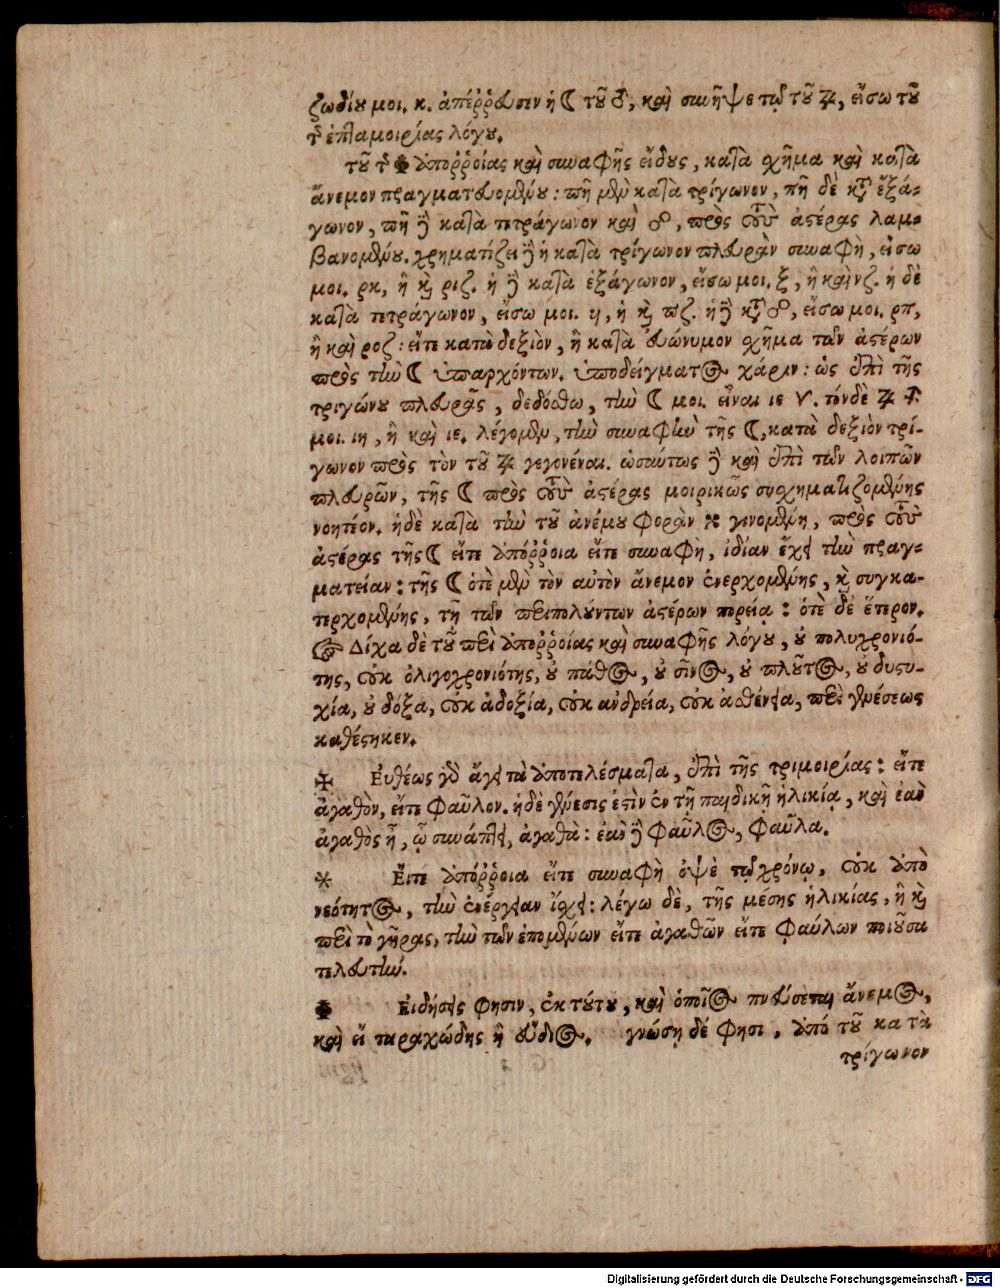 ζωδίου μοι. κ. ἀπέῤῥευσεν ἡ ☾ τοῦ ♂, καὶ συνῆψε τῷ τοῦ ♃, εἴσω τοῦ
τῆς ἑπταμοιρίας λόγου.
τοῦ τῆς ⌽ ἀποῤῥοίας καὶ συναφῆς εἴδους, κατὰ σχῆμα καὶ κατὰ
ἄνεμον πραγματευομένου: πῆ μὲν κατὰ τρίγωνον, πῆ δὲ κατ' ἑξά-
γωνον, πῆ δὲ κατὰ τετράγωνον καὶ ☍, πρὸς τοὺς ἀστέρας λαμ-
βανομένου. χρηματίζει δὲ ἡ κατὰ τρίγωνον πλευρὰν συναφὴ, εἴσω
μοι. ρκ, ἢ καὶ ριζ. ἡ δὲ κατὰ ἑξάγωνον, εἴσω μοι. ξ, ἢ καὶ νζ. ἡ δὲ
κατὰ τετράγωνον, εἴσω μοι. ϟ, ἢ καὶ πζ. ἡ δὲ κατὰ ☍, εἴσω μοι. ρπ,
ἢ καὶ ροζ: εἴτε κατὰ δεξιὸν, ἢ κατὰ εὐώνυμον σχῆμα τῶν ἀστέρων
πρὸς τὴν ☾ ὑπαρχόντων. ὑποδείγματος χάριν: ὡς ἐπὶ τῆς
τριγώνου πλευρᾶς, δεδόσθω, τὴν ☾ μοι. εἶναι ιε ♈. τόνδε ♃ ♐
μοι. ιη, ἢ καὶ ιε. λέγομεν, τὴν συναφὴν τῆς ☾, κατὰ δεξιὸν τρί-
γωνον πρὸς τὸν τοῦ ♃ γεγονέναι. ὡσαύτως δὲ καὶ ἐπὶ τῶν λοιπῶν
πλευρῶν, τῆς ☾ πρὸς τοὺς ἀστέρας μοιρικῶς συσχηματιζομένης
νοητέον. ἡ δὲ κατὰ τὴν τοῦ ἀνέμου φορὰν ⁜ γινομένη, πρὸς τοὺς
ἀστέρας τῆς ☾ εἴτε ἀπόῤῥοια εἴτε συναφὴ, ἰδίαν ἔχει τὴν πραγ-
ματείαν: τῆς ☾ ὁτὲ μὲν τὸν αὐτὸν ἄνεμον ἀνερχομένης, καὶ συγκα-
τερχομένης, τῇ τῶν περιπολούντων ἀστέρων πορείᾳ: ὁτὲ δὲ ἕτερον.
☞ Δίχα δὲ τοῦ περὶ ἀποῤῥοίας καὶ συναφῆς λόγου, οὐ πολυχρονιό-
της, οὐκ ὀλιγοχρονιότης, οὐ πάθος, οὐ σῖνος, οὐ πλοῦτος, οὐ δυστυ-
χία, οὐ δόξα, οὐκ ἀδοξία, οὐκ ἀνδρεία, οὐκ ἀσθένεια, περὶ γενέσεως
καθέστηκεν.
✠ Εὐθέως γὰρ ἄγει τὰ ἀποτελέσματα, ἐπὶ τῆς τριμοιρίας: εἴτε
ἀγαθὸν, εἴτε φαῦλον. ἡ δὲ γένεσις ἐστὶν ἐν τῇ παιδικῇ ἡλικίᾳ, καὶ ἐὰν
ἀγαθὸς ᾖ, ᾧ συνάπτει, ἀγαθὰ: ἐὰν δὲ φαῦλος, φαῦλα.
⁎ Εἴτε ἀπόῤῥοια εἴτε συναφὴ ὀψὲ τῷ χρόνῳ, οὐκ ἀπὸ
νεότητος, τὴν ἐνέργειαν ἴσχει: λέγω δὲ, τῆς μέσης ἡλικίας, ἢ καὶ
περὶ τὸ γῆρας, τὴν τῶν ἑπομένων εἴτε ἀγαθῶν εἴτε φαύλων ποιοῦσα
τελευτήν.
⌽ Εἰδήσεις φησιν, ἐκ τούτου, καὶ ὁποῖος πνεύσεται ἄνεμος,
καὶ εἰ ταραχώδης ἢ εὔδιος. γνώσῃ δέ φησι, ἀπό τοῦ κατὰ
τρίγωνον
Digitalisierung gefördert durch die Deutsche Forschungsgemeinschaft - DFG